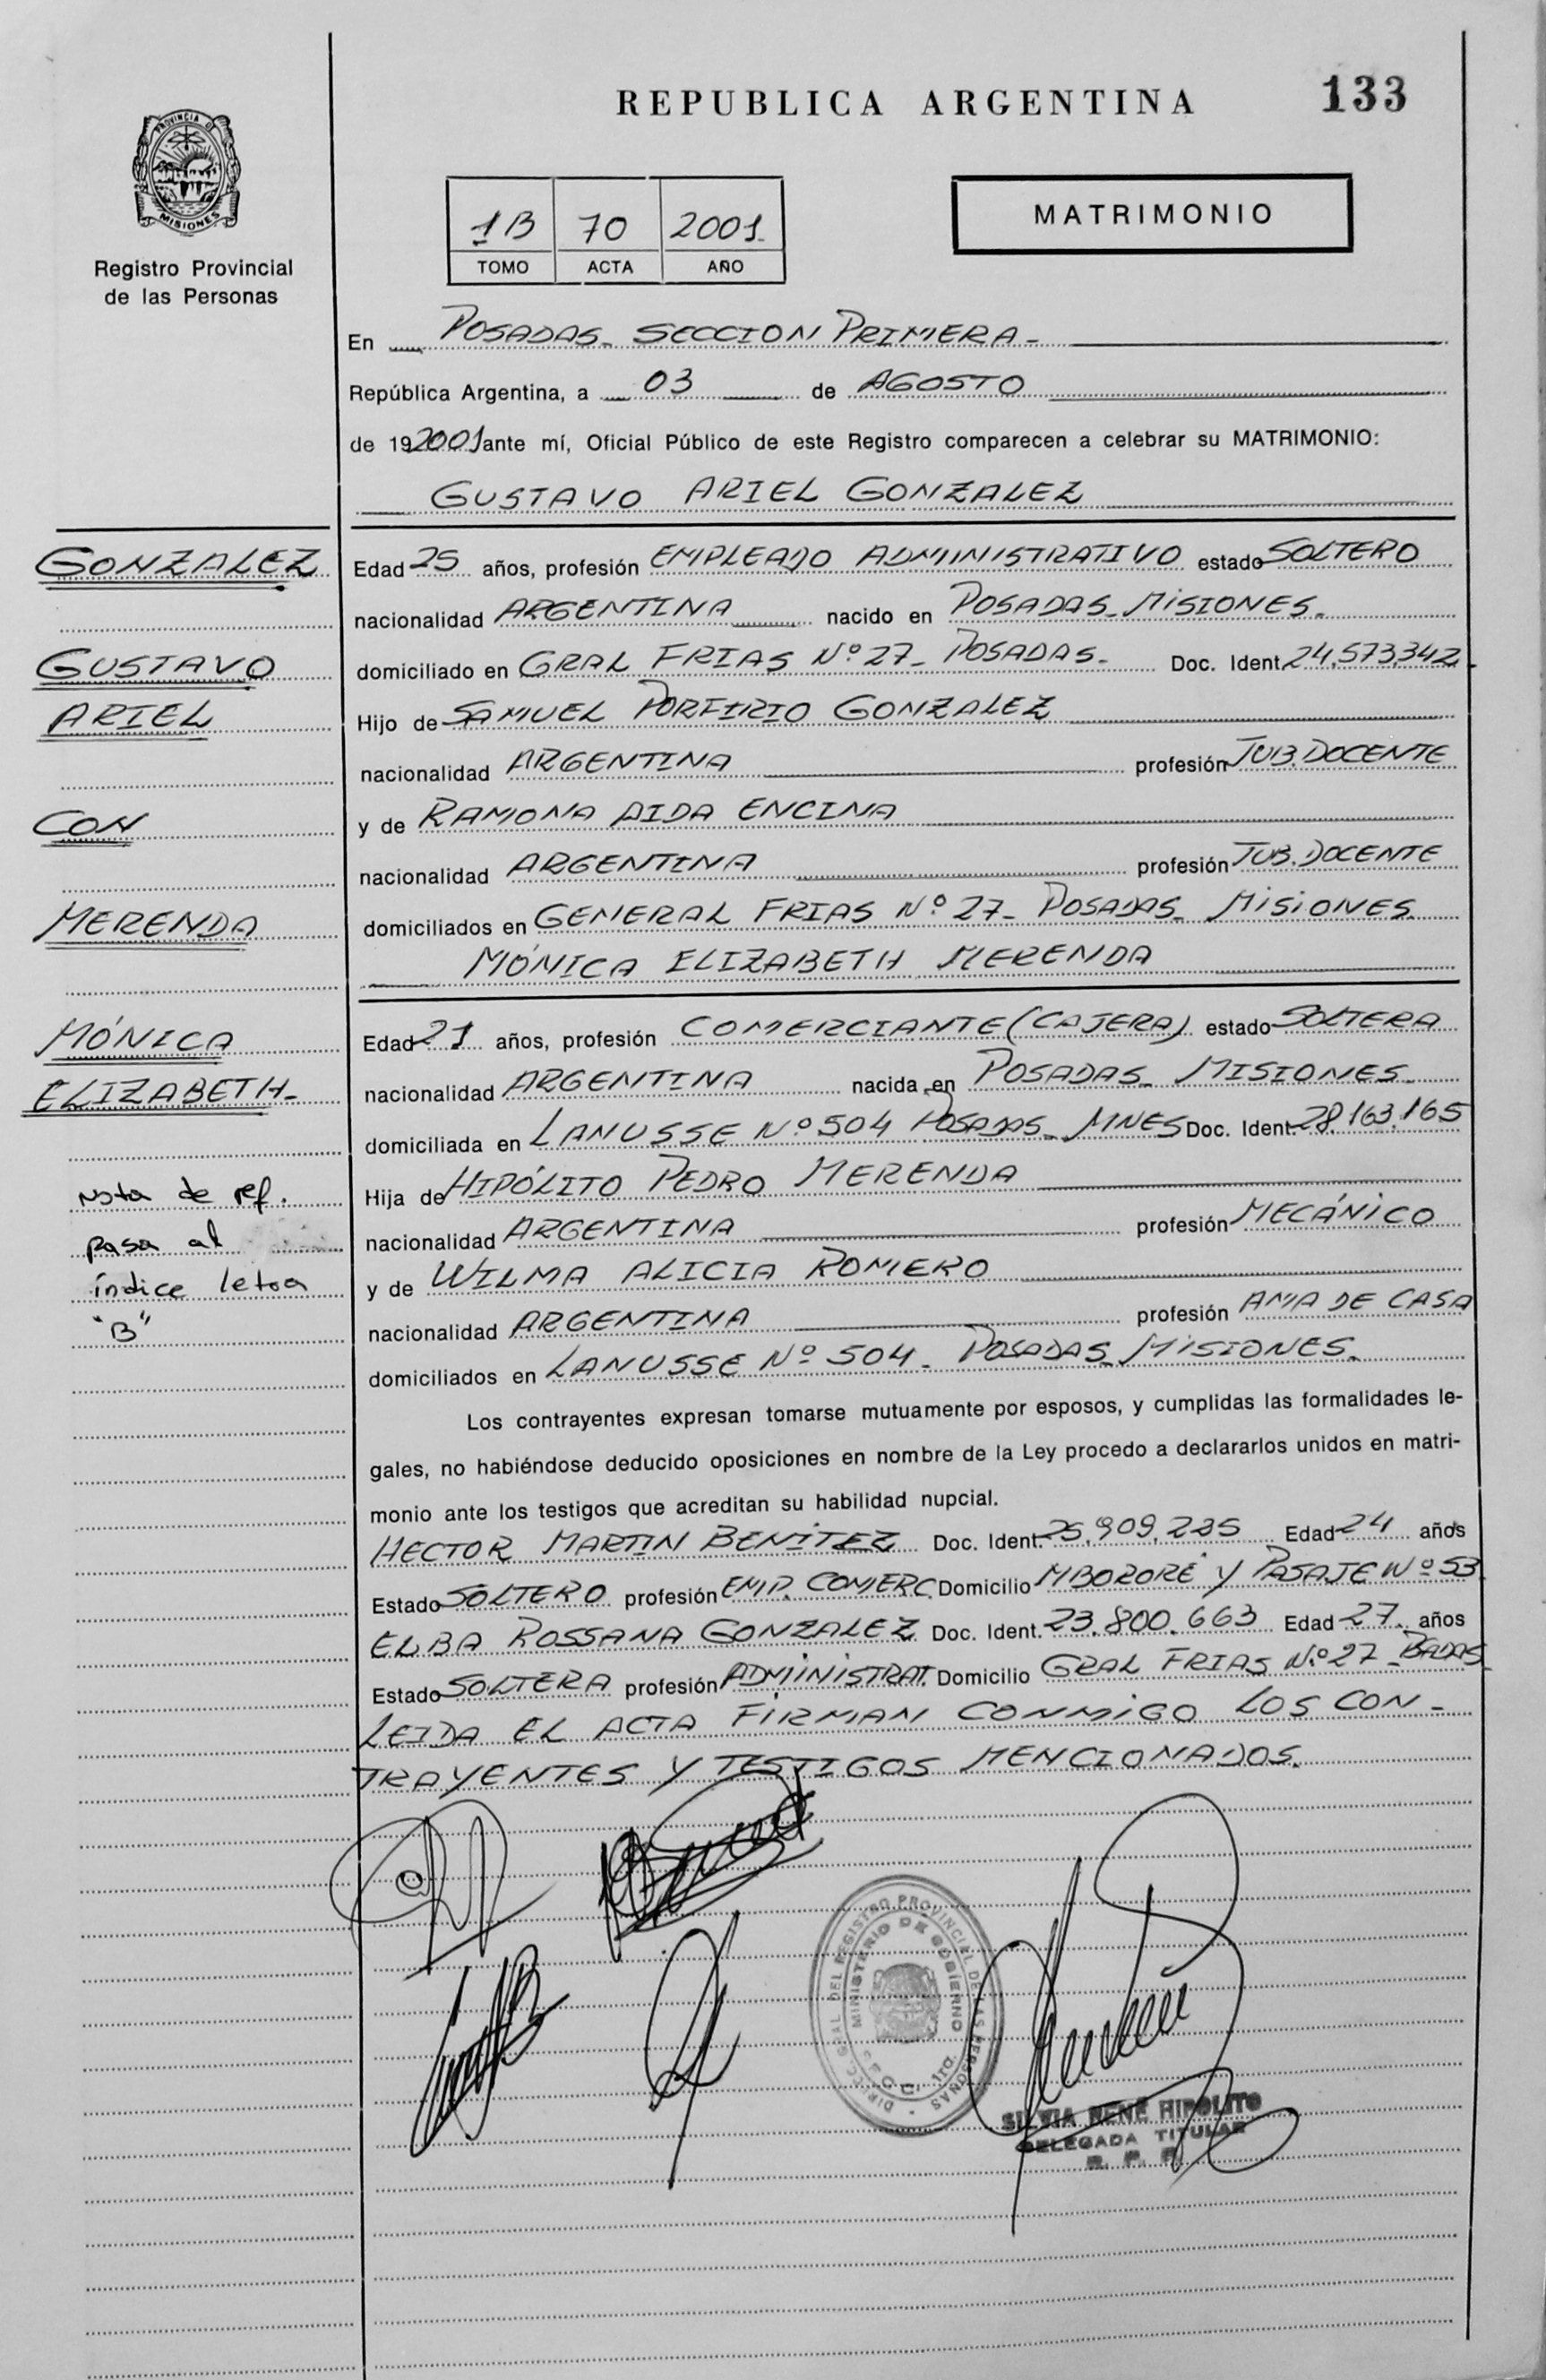 REPUBLICA ARGENTINA
133
PROVINCIA DE
MISIONES
Registro Provincial
de las Personas
1B 70 2001
TOMO ACTA AÑO
MATRIMONIO
En POSADAS- SECCION PRIMERA-
República Argentina, a 03 de AGOSTO
de 192001 ante mí, Oficial Público de este Registro comparecen a celebrar su MATRIMONIO:
GUSTAVO ARIEL GONZALEZ
GONZALEZ
GUSTAVO
ARIEL
CON
MERENDA
MÓNICA
ELIZABETH-
Nota de ref.
pasa al
índice letra
"B"
Edad 25 años, profesión EMPLEADO ADMINISTRATIVO estado SOLTERO
nacionalidad ARGENTINA nacido en POSADAS- MISIONES-
domiciliado en GRAL FRIAS Nº 27- POSADAS- Doc. Ident. 24.573.342-
Hijo de SAMUEL PORFIRIO GONZALEZ
nacionalidad ARGENTINA profesión JUB. DOCENTE
y de RAMONA AIDA ENCINA
nacionalidad ARGENTINA profesión JUB. DOCENTE
domiciliados en GENERAL FRIAS Nº 27- POSADAS- MISIONES
MÓNICA ELIZABETH MERENDA
Edad 21 años, profesión COMERCIANTE (CAJERA) estado SOLTERA
nacionalidad ARGENTINA nacida en POSADAS- MISIONES
domiciliada en LANUSSE Nº 504 POSADAS- MNES Doc. Ident. 28.163.165
Hija de HIPÓLITO PEDRO MERENDA
nacionalidad ARGENTINA profesión MECÁNICO
y de WILMA ALICIA ROMERO
nacionalidad ARGENTINA profesión AMA DE CASA
domiciliados en LANUSSE Nº 504- POSADAS- MISIONES-
Los contrayentes expresan tomarse mutuamente por esposos, y cumplidas las formalidades le-
gales, no habiéndose deducido oposiciones en nombre de la Ley procedo a declararlos unidos en matri-
monio ante los testigos que acreditan su habilidad nupcial.
HECTOR MARTIN BENÍTEZ Doc. Ident. 25.909.225 Edad 24 años
Estado SOLTERO profesión EMP. COMERC. Domicilio MBORORÉ Y PASAJE Nº 53
ELBA ROSSANA GONZALEZ Doc. Ident. 23.800.663 Edad 27 años
Estado SOLTERA profesión ADMINISTRAT. Domicilio GRAL FRIAS Nº 27- PDAS-
LEIDA EL ACTA FIRMAN CONMIGO LOS CON-
TRAYENTES Y TESTIGOS MENCIONADOS.
DIRECC. GRAL. DEL REGISTRO PROVINCIAL DE LAS PERSONAS
MINISTERIO DE GOBIERNO
SECC. 1ra.
SILVIA RENÉ HIPOLITO
DELEGADA TITULAR
R. P. P.